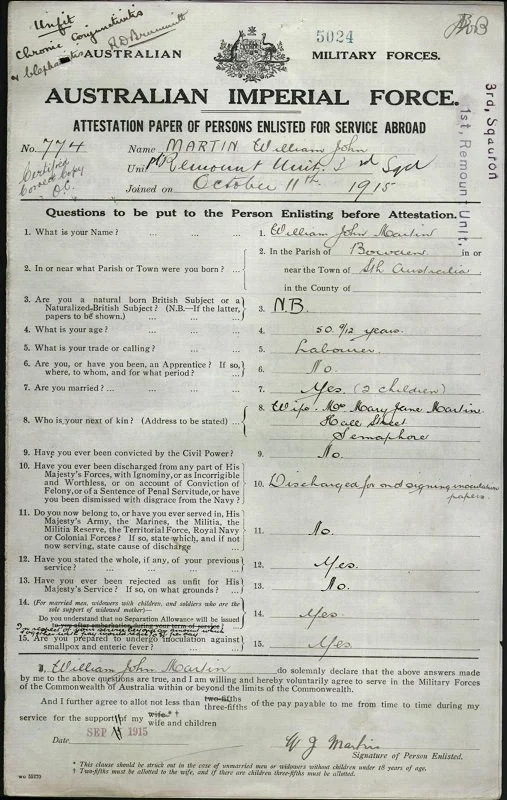 Unfit
Chronic Conjunctivitis
& Blepharitis
5024
AUSTRALIAN MILITARY FORCES.
AUSTRALIAN IMPERIAL FORCE.
3rd, Sqauron
1st, Remount Unit,
ATTESTATION PAPER OF PERSONS ENLISTED FOR SERVICE ABROAD
No. 774 Name MARTIN William John
Certified
Correct Copy
O.C.
Unit Remount Unit. 3rd Sqd
Joined on October 11th 1915
Questions to be put to the Person Enlisting before Attestation.
1. What is your Name? ... ... ... 1. William John Martin
2. In or near what Parish or Town were you born? ... 2. In the Parish of Bowden in or
near the Town of Sth Australia
in the County of
3. Are you a natural born British Subject or a
Naturalized British Subject? (N.B.—If the latter,
papers to be shown.) ... ... 3. N.B.
4. What is your age? ... ... ... 4. 50. 9/12 years.
5. What is your trade or calling? ... ... 5. Labourer.
6. Are you, or have you been, an Apprentice? If so,
where, to whom, and for what period? ... 6. No.
7. Are you married? ... ... ... 7. Yes. (2 children)
8. Who is your next of kin? (Address to be stated) ... 8. Wife. Mrs Mary Jane Martin
Hall Street
Semaphore
9. Have you ever been convicted by the Civil Power? 9. No.
10. Have you ever been discharged from any part of His
Majesty's Forces, with Ignominy, or as Incorrigible
and Worthless, or on account of Conviction of
Felony, or of a Sentence of Penal Servitude, or have
you been dismissed with disgrace from the Navy? 10. Discharged for not signing inoculation
papers.
11. Do you now belong to, or have you ever served in, His
Majesty's Army, the Marines, the Militia, the
Militia Reserve, the Territorial Force, Royal Navy
or Colonial Forces? If so, state which, and if not
now serving, state cause of discharge ... 11. No.
12. Have you stated the whole, if any, of your previous
service? ... ... ... 12. Yes.
13. Have you ever been rejected as unfit for His
Majesty's Service? If so, on what grounds? ... 13. No.
14. (For married men, widowers with children, and soldiers who are the
sole support of widowed mother)—
Do you understand that no Separation Allowance will be issued
14. Yes
15. Are you prepared to undergo inoculation against
smallpox and enteric fever? ... ... 15. Yes
I, William John Martin do solemnly declare that the above answers made
by me to the above questions are true, and I am willing and hereby voluntarily agree to serve in the Military Forces
of the Commonwealth of Australia within or beyond the limits of the Commonwealth.
And I further agree to allot not less than two-fifths three-fifths of the pay payable to me from time to time during my
service for the support of my wife * † wife and children
Date SEP 1915
W J Martin
Signature of Person Enlisted.
* This clause should be struck out in the case of unmarried men or widowers without children under 18 years of age.
† Two-fifths must be allotted to the wife, and if there are children three-fifths must be allotted.